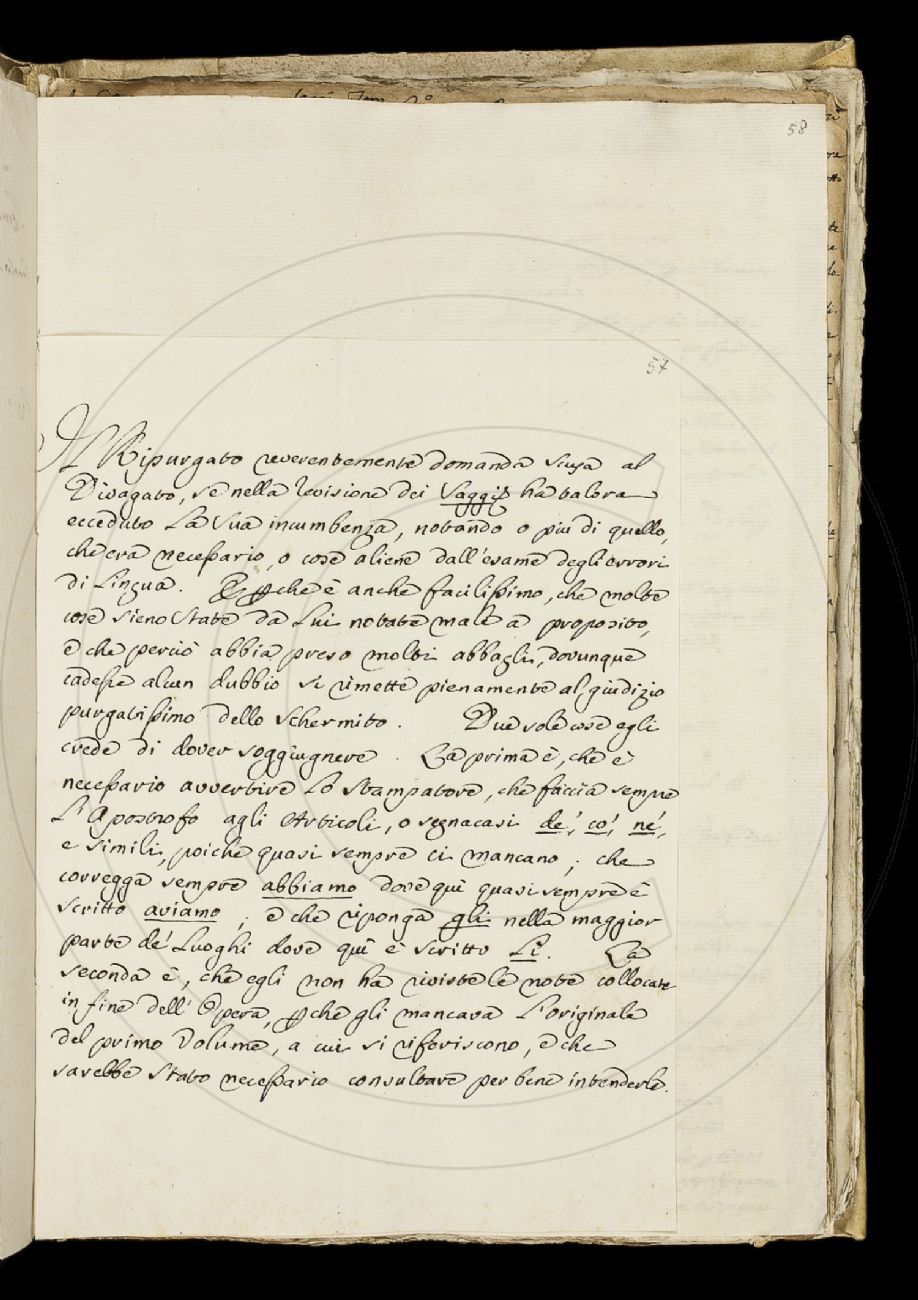 58
57
Il Ripurgato reverentemente domanda scusa al
Divagato, se nella revisione dei Saggi ha talora
ecceduto la sua incumbenza, notando o più di quello,
che era necessario, o cose aliene dall'esame degli errori
di Lingua. E pche è anche facilissimo, che molte
cose sieno state da lui notate male a proposito,
e che perciò abbia preso molti abbagli, dovunque
cadesse alcun dubbio si rimette pienamente al giudizio
purgatissimo dello Schermito. Due sole cose egli
crede di dover soggiugnere. La prima è, che è
necessario avvertire lo Stampatore, che faccia sempre
l'Apostrofo agli Articoli, o segnacasi de', co', ne',
e simili, poichè quasi sempre ci mancano; che
corregga sempre abbiamo dove quì quasi sempre è
scritto aviamo; e che riponga gli nella maggior
parte de' Luoghi dove quì è scritto Li. La
seconda è, che egli non ha riviste le note collocate
in fine dell'Opera, pche gli mancava l'originale
del primo Volume, a cui si riferiscono, e che
sarebbe stato necessario consultare per bene intenderle.